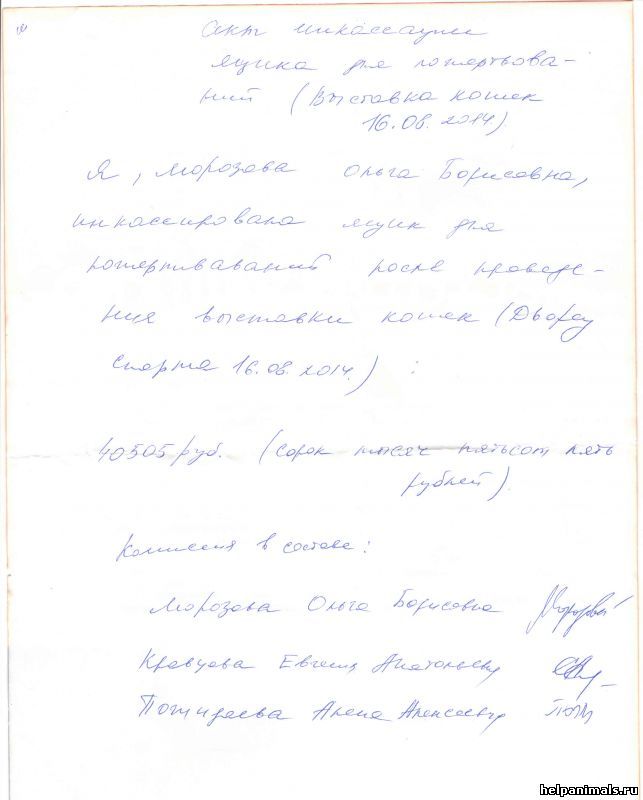 Акт инкассации
ящика для пожертвова-
ний (Выставка кошек
16.08.2014)
Я, Морозова Ольга Борисовна,
инкассировала ящик для
после проведе-
ния выставки кошек (Дворец
Спорта 16.08.2014.) :
40505 руб. (сорок тысяч пятьсот пять
рублей).
Комиссия в составе:
Морозова Ольга Борисовна
Кравцова Евгения Анатольевна
Пожидаева Алена Алексеевна
helpanimals.ru